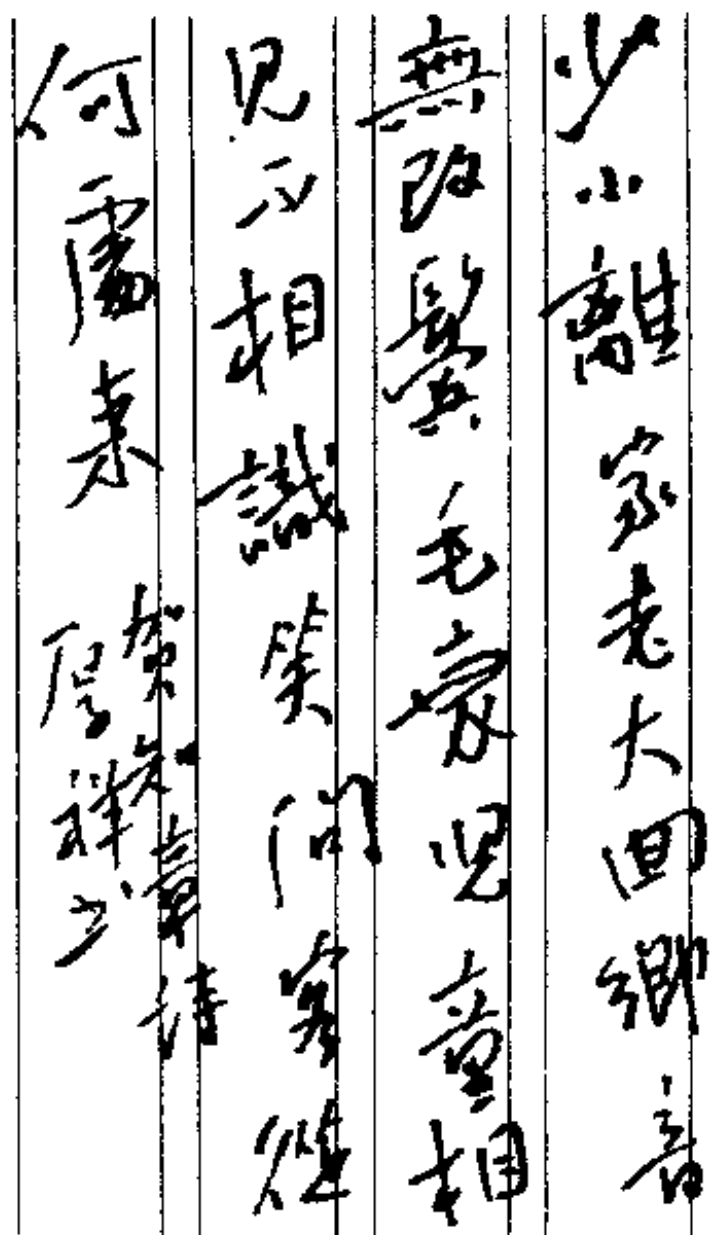 少小離家老大回鄉音
無改鬢毛衰兒童相
見不相識笑問客從
何處來
賀知章詩
厚祥书